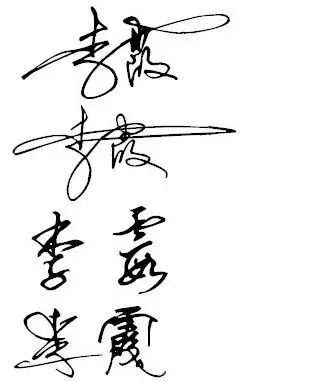 李霞
李霞
李霞
李霞